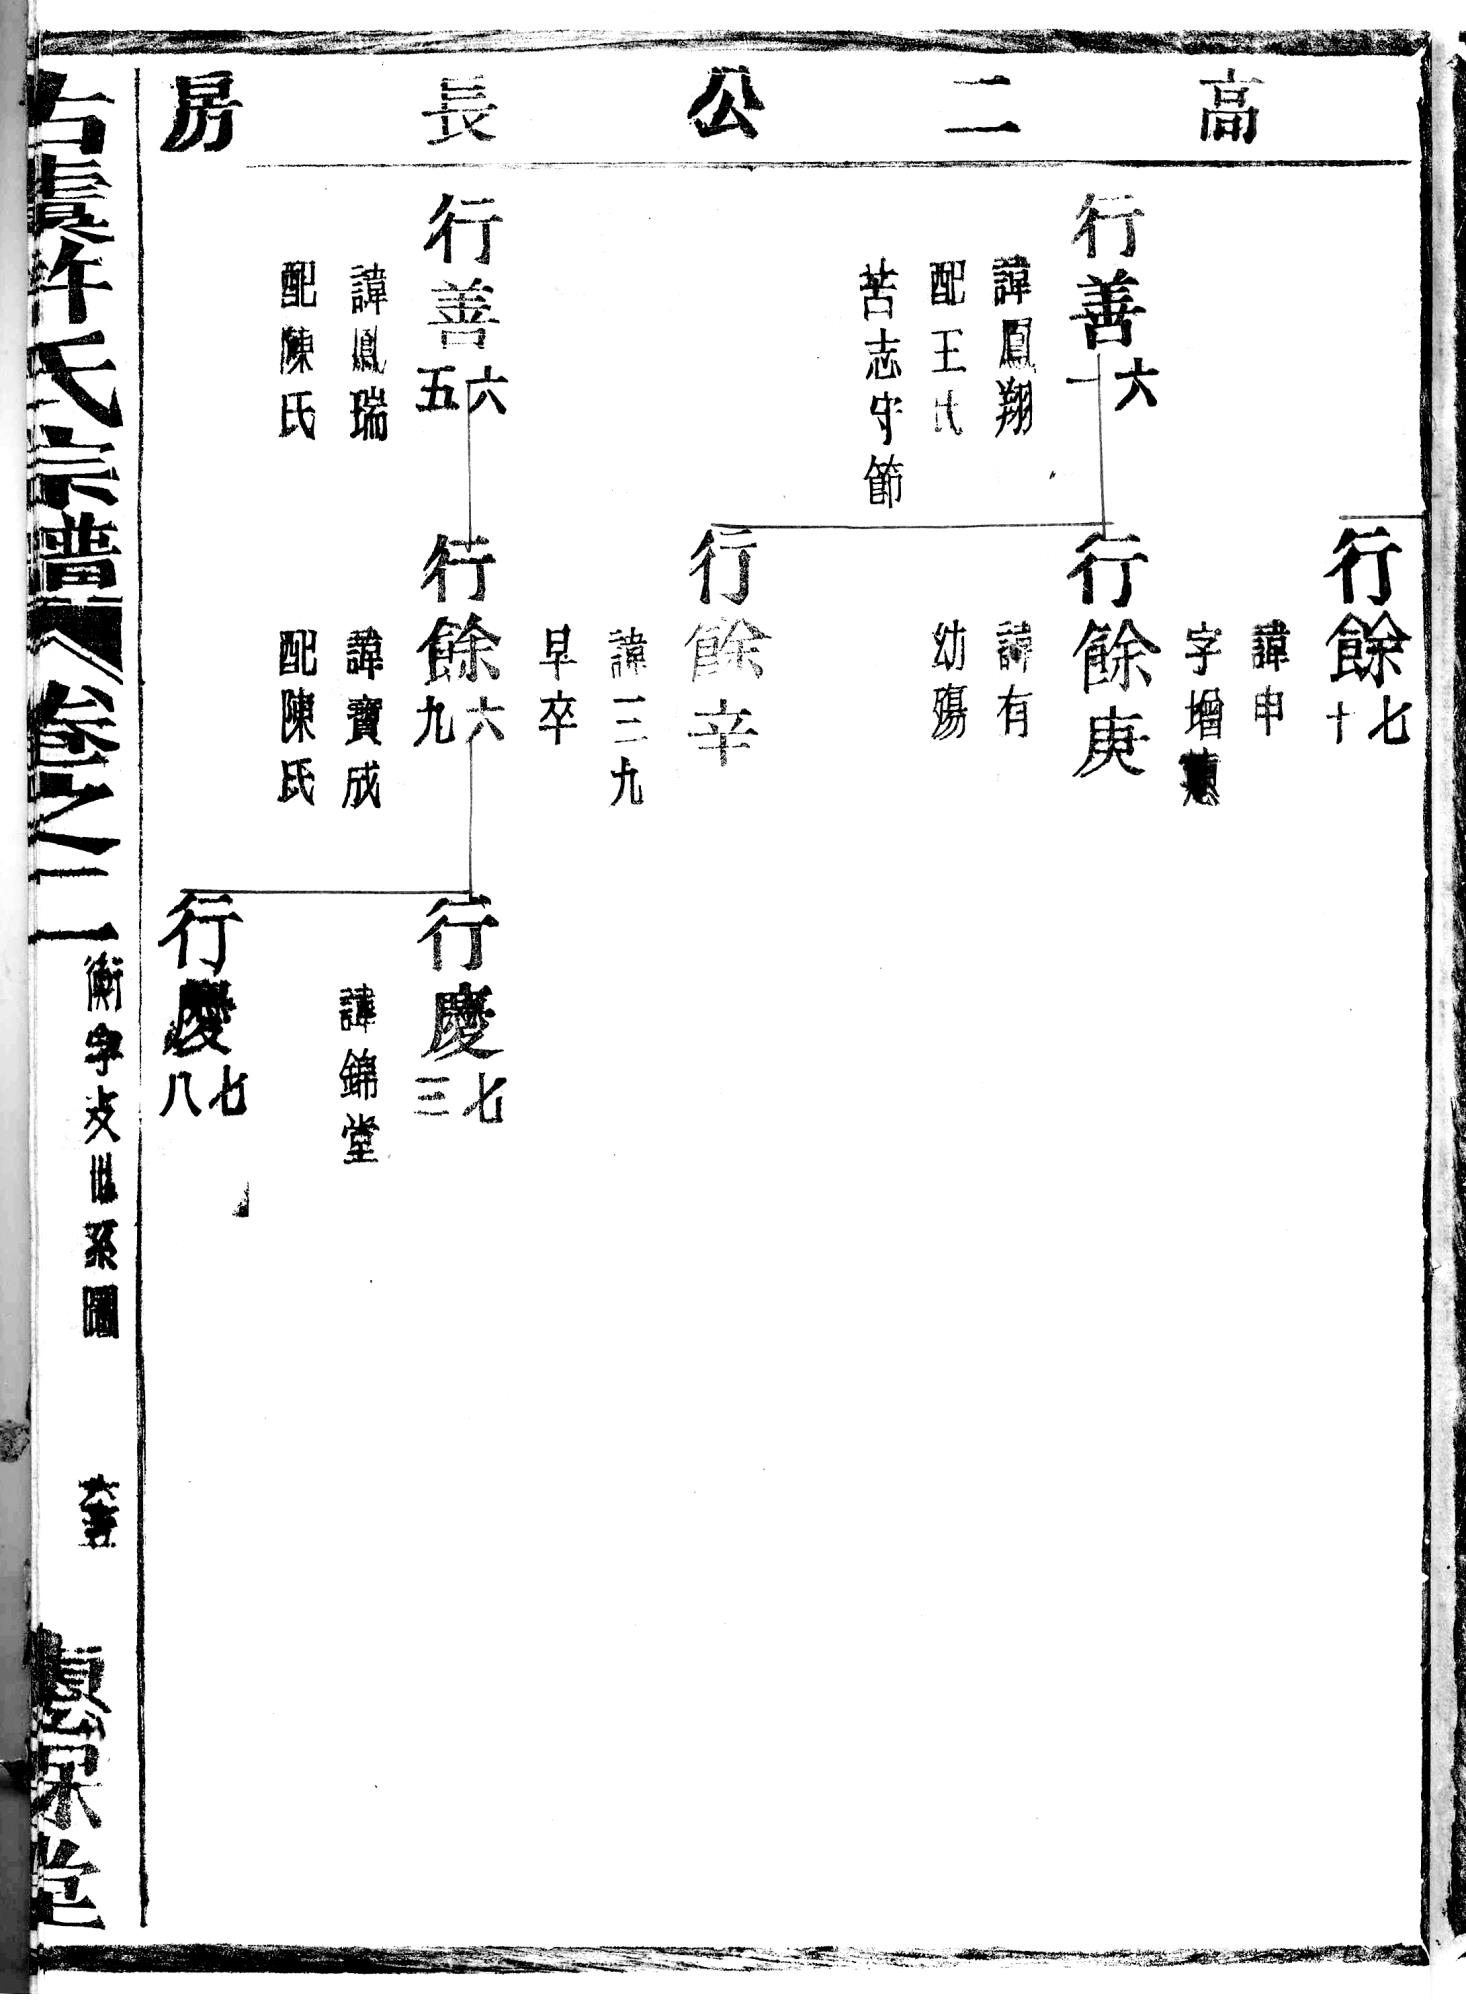 高二公長房
行餘七十
諱申
字增蕙
行善六一
諱鳳翔
配王氏
苦志守節
行餘庚
諱有
幼殤
行餘辛
諱三九
早卒
行善六五
諱鳳瑞
配陳氏
行餘六九
諱寶成
配陳氏
行慶七三
諱錦堂
行慶七八
古虞許氏宗譜
卷之二
衡字支世系圖
堂